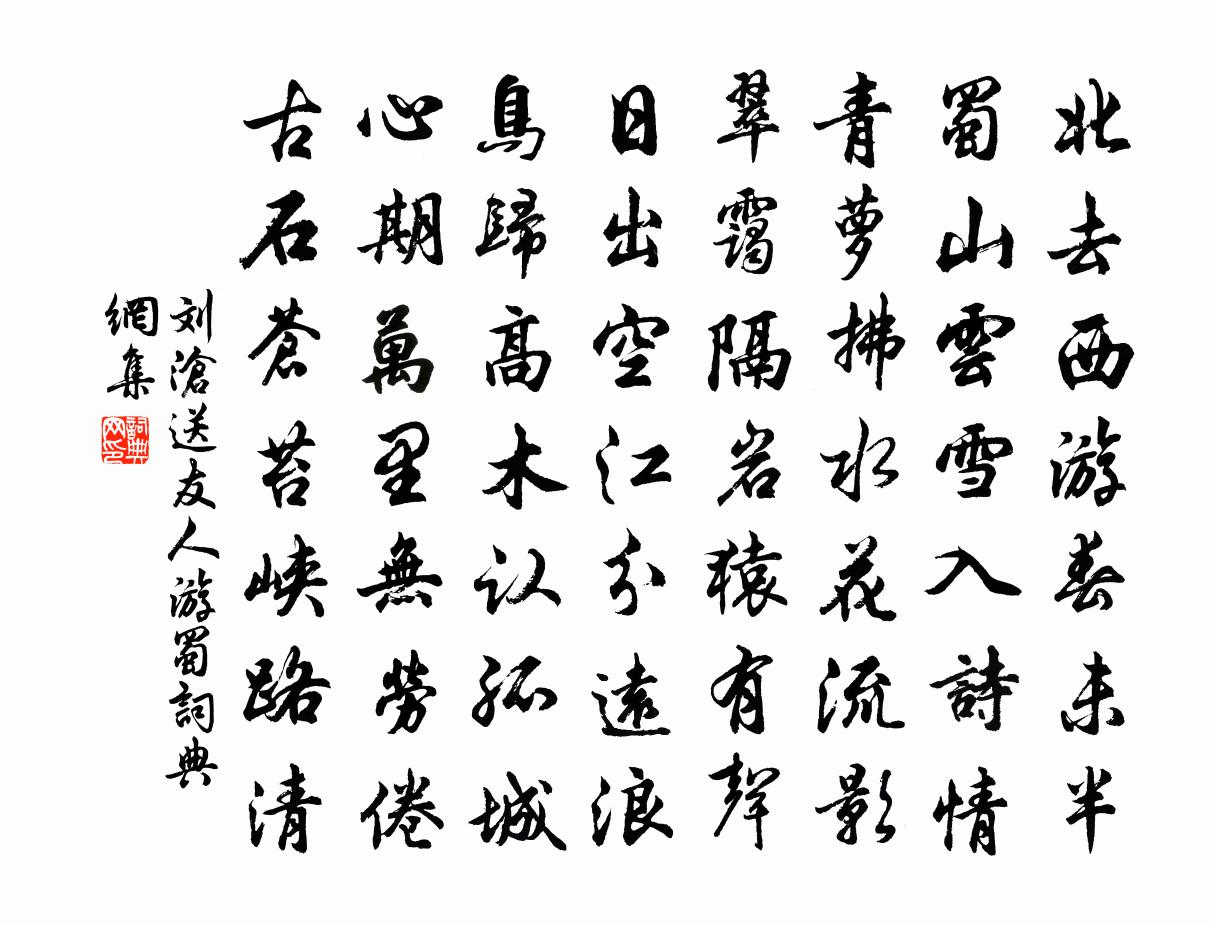 北去西游春未半
蜀山雲雪入詩情
青萝拂水花流影
翠靄隔岩猿有聲
日出空江分遠浪
鳥歸高木认孤城
心期萬里無勞倦
古石蒼苔峡路清
刘滄送友人游蜀詞典
網集
詞典
网印